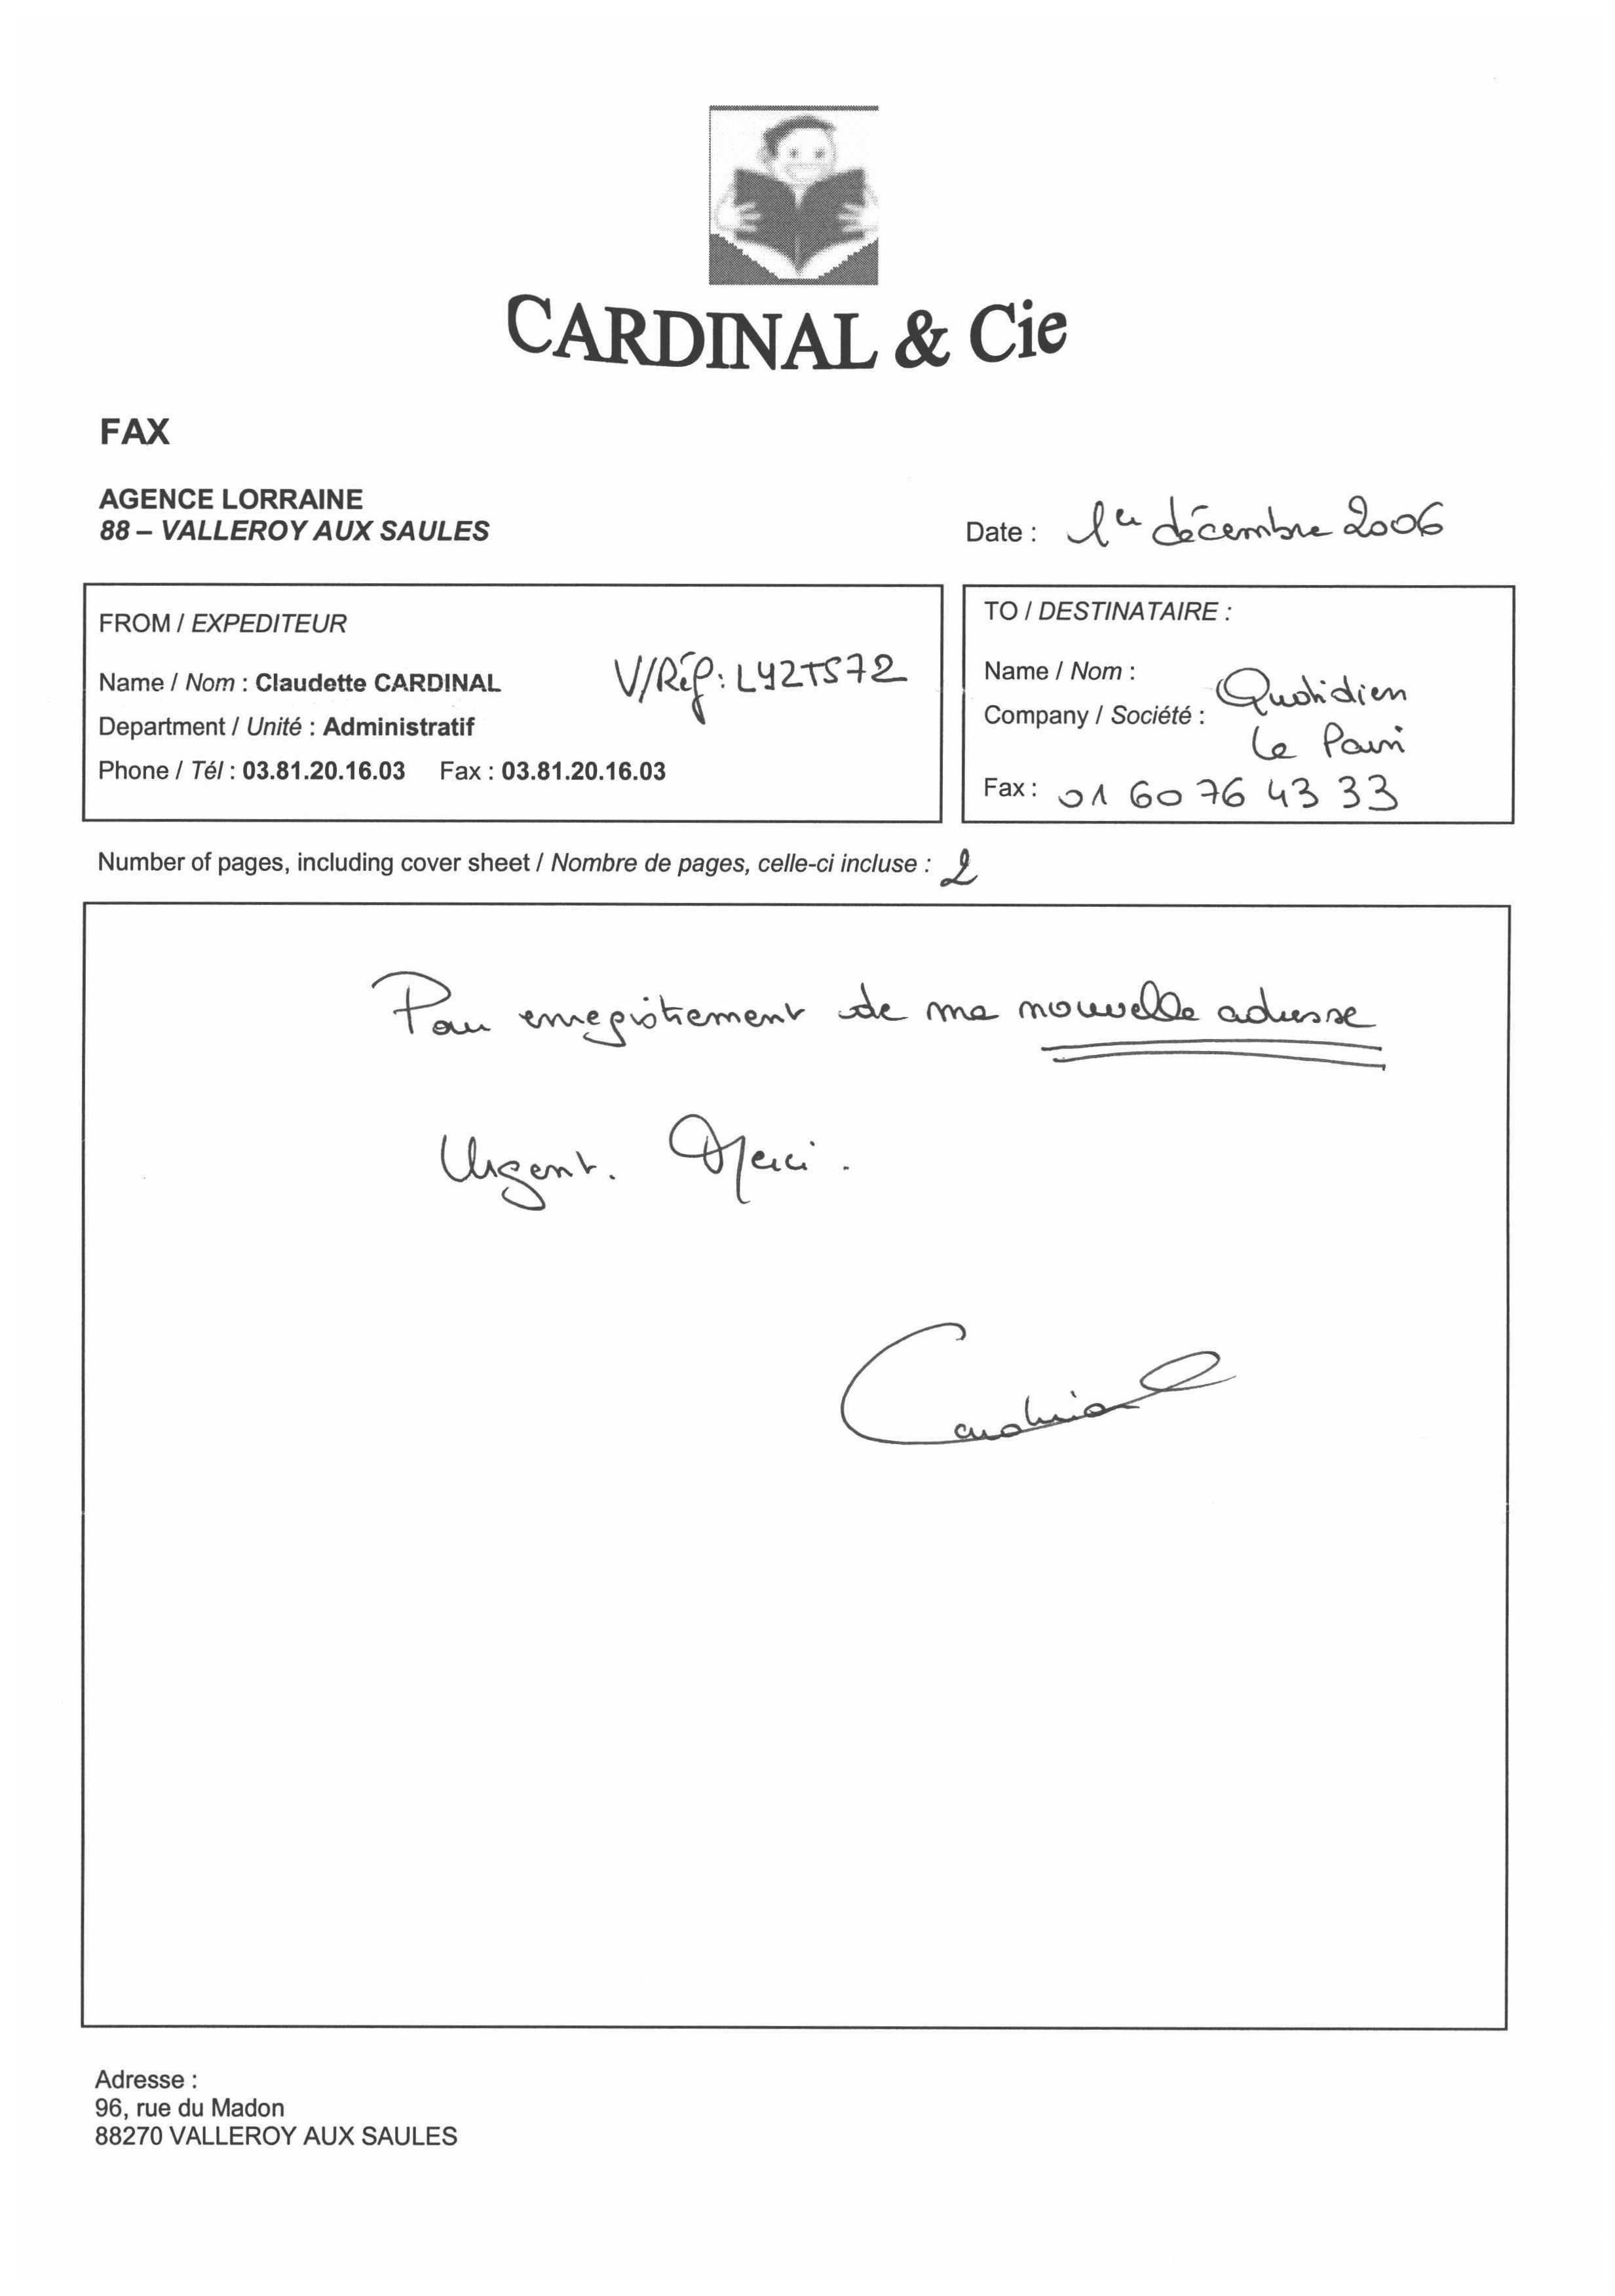 CARDINAL & Cie
FAX
AGENCE LORRAINE
88 – VALLEROY AUX SAULES
Date : 1er décembre 2006
FROM / EXPEDITEUR
Name / Nom : Claudette CARDINAL
V/Réf: L42TS72
Department / Unité : Administratif
Phone / Tél : 03.81.20.16.03 Fax : 03.81.20.16.03
TO / DESTINATAIRE :
Name / Nom :
Company / Société : Quotidien
Le
Fax : 01 60 76 43 33
Number of pages, including cover sheet / Nombre de pages, celle-ci incluse : 2
Pour enregistrement de ma nouvelle adresse
Urgent. Merci.
Cardinal
Adresse :
96, rue du Madon
88270 VALLEROY AUX SAULES